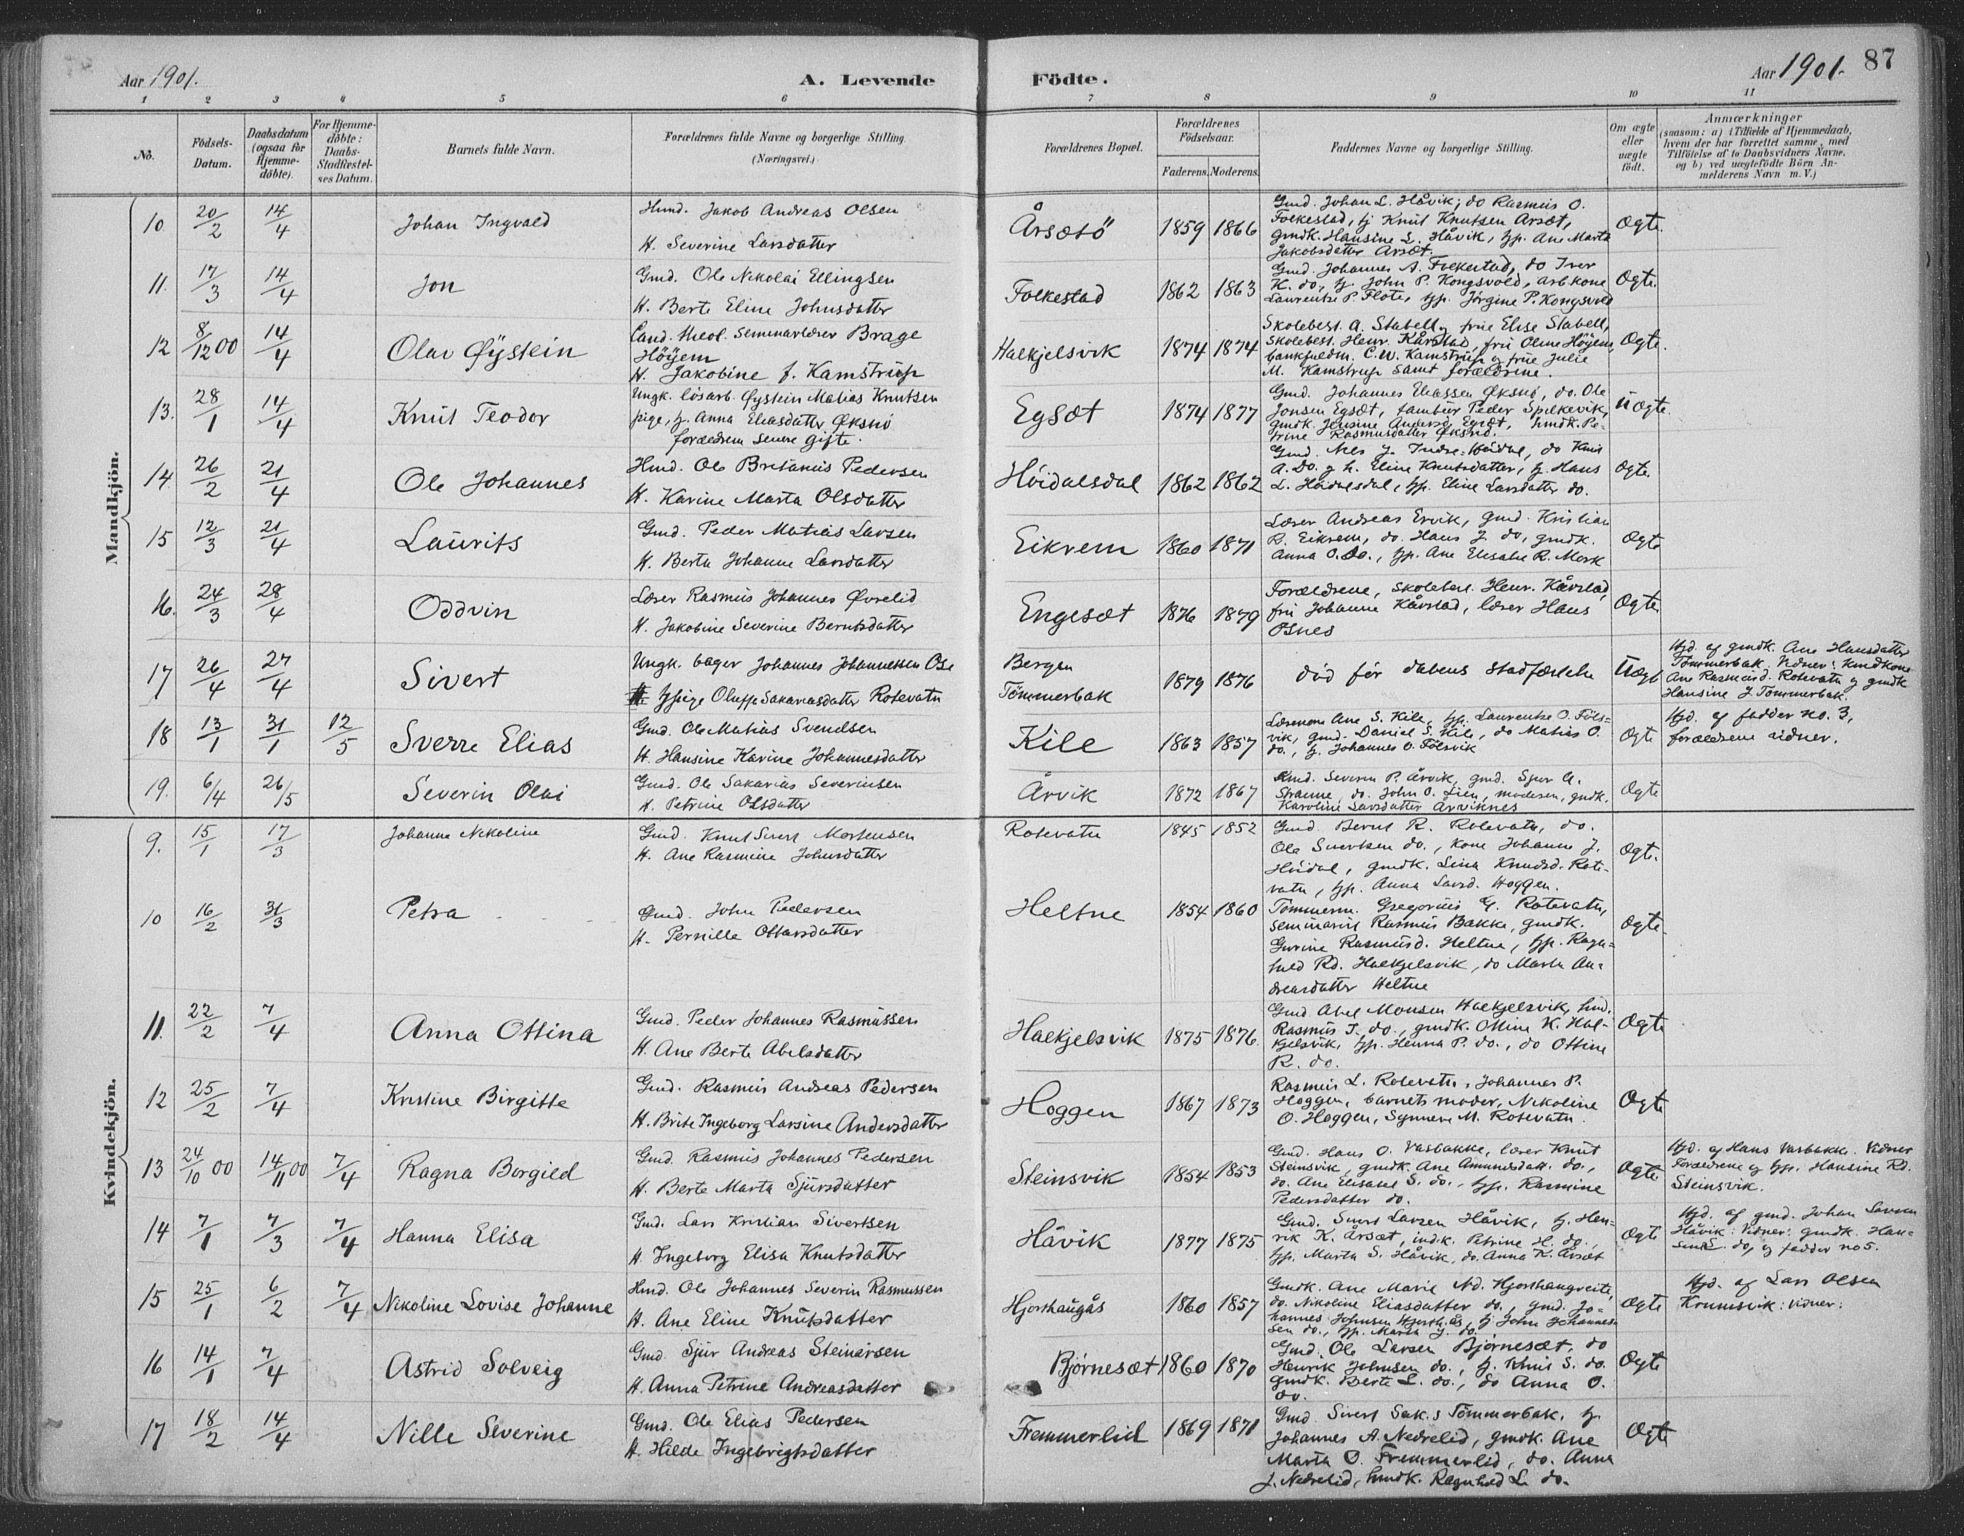 Aar 1901.
A. Levende
Födte.
Aar 1901.
87
1 2 3 4 5 6 7 8 9 10 11
No.
Födsels-
Datum.
Daabsdatum
(ogsaa for
Hjemme-
döbte).
For Hjemme-
döbte:
Daabs-
Stadfestel-
ses Datum.
Barnets fulde Navn.
Forældrenes fulde Navne og borgerlige Stilling.
(Næringsvei.)
Forældrenes Bopæl.
Forældrenes
Födselsaar.
Faderens.
Moderens.
Faddernes Navne og borgerlige Stilling.
Om ægte
eller
uægte
födt.
Anmærkninger
(saasom: a) i Tilfælde af Hjemmedaab,
hvem der har forrettet samme, med
Tilföielse af to Daabsvidners Navne,
og b) ved uægtefödte Börn An-
melderens Navn m. V.)
Mandkjön.
10. 20/2 14/4 Johan Ingvald
Hmd. Jakob Andreas Olsen
H. Severine Larsdatter
Årsætö 1859 1866
Gmd. Johan L. Håvik, do Rasmus O.
Folkestad, Knut Knutsen Årsæt,
gmdk. Hansine L. Håvik, Ane Marta
Jakobsdatter Årsæt.
Ægte.
11. 17/3 14/4 Jon
Gmd. Ole Nikolai Ellingsen
H. Berte Eline Johnsdatter
Folkestad 1862 1863
Gmd. Johannes A. Folkestad, do Iver
K. do, John P. Kongsvold, arb. kone
Laurentse P. Flote, Jörgine P. Kongsvold
Ægte.
12 8/12 00 14/4 Olav Øystein
Cand. theol. Seminarlærer Brage
Höyem
H. Jakobine f. Kamstrup
Halkjelsvik 1874 1874
Skolebest. A. Stabell, frue Elise Stabell,
Skolebest. Henr. Kårstad, fru Oline Höyem,
bankfuldm. C. W. Kamstrup og frue Julie
M. Kamstrup samt forældrene.
Ægte.
13. 28/1 14/4 Knut Teodor
Ungk. lösarb. Øystein Matias Knutsen
pige, Anna Eliasdatter Øksnö
forældrene senere gifte.
Egsæt 1874 1877
Gmd. Johannes Eliassen Øksnö, do. Ole
Jonsen Egsæt, tambur Peder Spilkevik,
gmdk. Jensine Andersd. Egsæt, hmdk. Pe-
trine Rasmusdatter Øksnö.
Uægte.
14. 26/2 21/4 Ole Johannes
Hmd. Ole Britanius Pedersen
H. Karine Marta Olsdatter
Höidalsdal 1862 1862
Gmd. Nils J. Indre-Höidal, do Knut
A. Do. Eline Knutsdatter, Hans
L. Höidalsdal, Eline Larsdatter do.
Ægte.
15 12/3 21/4 Laurits
Gmd. Peder Matias Larsen
H. Berta Johanne Larsdatter
Eikrem 1860 1871
Lærer Andreas Ervik, gmd. Kristian
R. Eikrem, do. Hans J. do, gmdk.
Anna O. do., Ane Elisabe R. Mork
Ægte
16. 24/3 28/4 Oddvin
Lærer Rasmus Johannes Øvrelid
H. Jakobine Severine Berntsdatter
Engesæt 1876 1879
Forældrene, skolebest. Henr. Kårstad,
fru Johanne Kårstad, lærer Hans
Osnes
Ægte.
17 26/4 27/4 Sivert
Ungk. bager Johannes Johannessen Ose
pige Oluffa Sakariasdatter Rotevatn
Bergen
Tömmerbak 1879 1876
död för dåbens stadfæstelse
Uægte
Hjd. af gmdk. Ane Hansdatter
Tömmerbak. Vidner: kmdkone
Ane Rasmusd. Rotevatn og gmdk
Hansine J. Tömmerbak.
18 13/1 31/1 12/5 Sverre Elias
Gmd. Ole Matias Svendsen
H. Hansine Karine Johannesdatter
Kile 1863 1857
Ane S. Kile, Laurentse O. Föls-
vik, gmd. Daniel S. Kile, do Matias O.
do., Johannes O. Fölsvik
Ægte
Hjd. af fadder no. 3,
forældrene vidner.
19. 6/4 26/5 Severin Olai
Gmd. Ole Sakarias Severinsen
H. Petrine Olsdatter
Årvik 1872 1867
Gmd. Severin P. Årvik, gmd. Sjur A.
Straume, do. John O. Lien, moderen, gmdk.
Karoline Larsdatter Årviknes
Ægte
Kvindekjön.
9. 15/1 17/3 Johanne Nikoline
Gmd. Knut Sivert Mortensen
H. Ane Rasmine Johnsdatter
Rotevatn 1845 1852
Gmd. Bernt R. Rotevatn, do.
Ole Sivertsen do., kone Johanne J.
Höidal, gmdk. Lina Knudsd. Rote-
vatn, Anna Larsd. Hoggen.
Ægte.
10 16/2 31/3 Petra
Gmd. John Pedersen
H. Pernille Ottarsdatter
Heltne 1854 1860
Tömmerm. Gregorius G. Rotevatn,
seminarist Rasmus Bakke, gmdk.
Gurine Rasmusd. Heltne, Ragn-
hild Rd. Halkjelsvik, do Marta An-
dreasdatter Heltne
Ægte.
11. 22/2 7/4 Anna Ottina
Gmd. Peder Johannes Rasmussen
H. Ane Berte Abelsdatter
Halkjelsvik 1875 1876.
Gmd Abel Monsen Halkjelsvik, hmd.
Rasmus T. do., gmdk. Oline K. Hal-
kjelsvik, Henna P. do., do Ottine
R. do.
Ægte
12 25/2 7/4 Kristine Birgitte
Gmd. Rasmus Andreas Pedersen
H. Brite Ingeborg Larsine Andersdatter
Hoggen 1867 1873
Rasmus L. Rotevatn, Johannes P.
Hoggen, barnets moder, Nikoline
O. Hoggen, Synnøve M. Rotevatn.
Ægte
13 24/10 00 14/11 00 7/4 Ragna Borgild
Gmd. Rasmus Johannes Pedersen
H. Berte Marta Sjursdatter
Steinsvik 1854 1853
Gmd. Hans O. Vasbakke, lærer Knut
Steinsvik, gmdk. Ane Amundsdatt. do.,
do. Ane Elisabet S. do., Rasmine
Pedersdatter do.
Ægte
Hjd. af Hans Vasbakke. Vidner
Forældrene og Hansine Rd.
Steinsvik.
14 7/1 7/3 7/4 Hanna Elisa
Gmd. Lars Kristian Sivertsen
H. Ingeborg Elisa Knutsdatter
Håvik 1877 1875
Gmd. Sivert Larsen Håvik, Hen-
rik K. Årsæt, indk. Petrine H. do.,
Marta S. Håvik, do. Anna K. Årsæt
Ægte
Hjd. af gmd. Johan Larsen
Håvik. Vidner: gmdk. Han-
sine L. do. og fadder no 5.
15 25/1 6/2 7/4 Nikoline Lovise Johanne
Hmd. Ole Johannes Severin Rasmussen
H. Ane Eline Knutsdatter
Hjorthaugås 1860 1857
Gmdk. Ane Marie Nd. Hjorthaugveite,
do. Nikoline Eliasdatter do, gmd. Jo-
hannes Johnsen Hjorthås, John Johannes-
sen do., Marta J. do.
Ægte
Hjd. af Lars Olsen
Krumsvik: vidner:
16 14/1 7/4 Astrid Solveig
Gmd. Sjur Andreas Steinarsen
H. Anna Petrine Andreasdatter
Bjørnesæt 1860 1870
Gmd. Ole Larsen Bjørnesæt, do
Henrik Johnsen do., Knut S. do.
gmdk. Berte L. do., do Anna O.
do.
Ægte
17 18/2 14/4 Nille Severine
Gmd. Ole Elias Pedersen
H. Hilde Ingebrigtsdatter
Fremmerlid 1869 1871
Gmd. Sivert Sak.s Tömmerbak,
Johannes A. Nedrelid, gmdk. Ane
Marta O. Fremmerlid, do. Anna
J. Nedrelid, hmdk. Ragnhild L. do.
Ægte